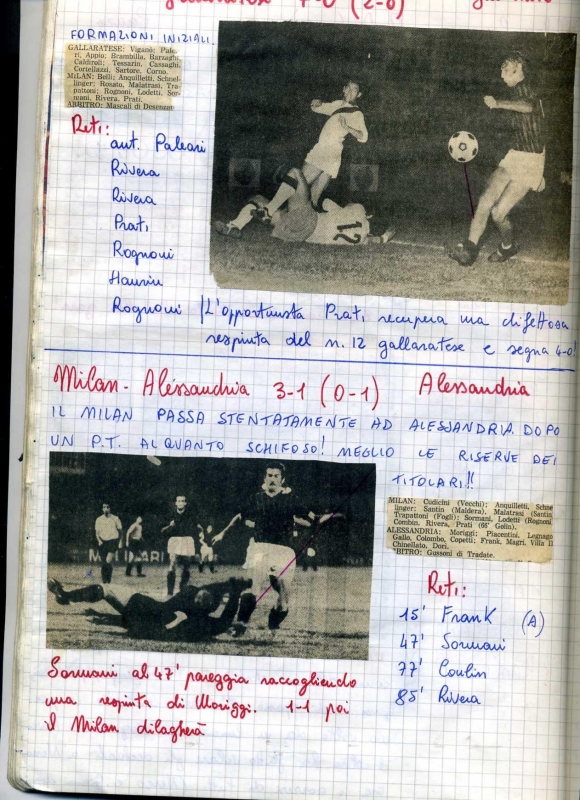 7-0 (2-0)
FORMAZIONI INIZIALI.
GALLARATESE: Viganò; Palea-
ri, Appio; Brambilla, Burzaghi,
Caldiroli; Tessario, Cassaghi,
Cortellazzi, Sartore, Corno.
MILAN: Belli; Anquilletti, Schnel-
linger; Rosato, Malatrasi, Tra-
pattoni; Rognoni, Lodetti, Sor-
mani, Rivera, Prati.
ARBITRO: Mascali di Desenzano
Reti:
aut. Paleari
Rivera
Rivera
Prati
Rognoni
Rognoni
12
L'opportunista Prati recupera una difettosa
respinta del n. 12 gallaratese e segna 4-0!
Milan - Alessandria 3-1 (0-1) Alessandria
IL MILAN PASSA STENTATAMENTE AD ALESSANDRIA DOPO
UN P.T. ALQUANTO SCHIFOSO! MEGLIO LE RISERVE DEI
TITOLARI!!
MOLINARI
MILAN: Cudicini (Vecchi); Anquilletti, Schne
linger; Santin (Maldera), Malatrasi (Santin
Trapattoni (Fogli); Sormani, Lodetti (Rognoni
Combin, Rivera, Prati (66' Golin).
ALESSANDRIA: Moriggi; Piacentini, Legnago
Gallo, Colombo, Copetti; Frank, Magri, Villa II
Chinellato, Dori.
ARBITRO: Gussoni di Tradate.
Reti:
15' Frank (A)
47' Sormani
77' Combin
85' Rivera
Sormani al 47' pareggia raccogliendo
una respinta di Moriggi. 1-1 poi
il Milan dilagherà